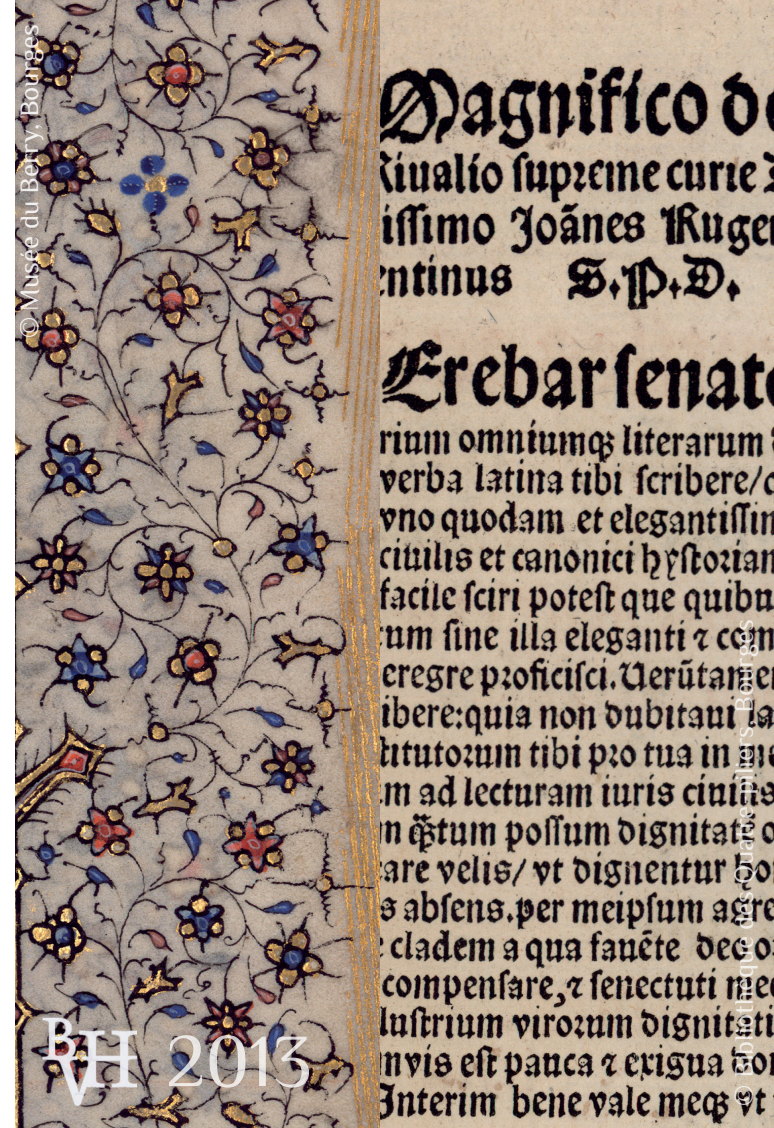 © Musée du Berry, Bourges
Magnifico do
Riualio ſupꝛeme curie
iſſimo Joānes Ruge
entinus S.P.D.
Erebar ſenato
rium omniumqꝫ literarum
verba latina tibi ſcribere/
vno quodam et elegantiſſi
ciuilis et canonici hyſtoꝛian
facile ſciri poteſt que quibu
rum ſine illa eleganti ⁊ com
eregre pꝛoficiſci. Uerūtamen
ibere: quia non dubitaui la
ſtitutoꝛum tibi pꝛo tua in me
m ad lecturam iuris ciuilis
n qͣꝫtum poſſum dignitatis
are velis/ vt dignentur
s abſens. per meipſum agre
cladem a qua fauēte deo
compenſare, ⁊ ſenectuti me
luſtrium viroꝛum dignitati
mvis eſt pauca ⁊ exigua
Interim bene vale meqꝫ vt
© Bibliothèque des Quatre piliers, Bourges
BVH 2013